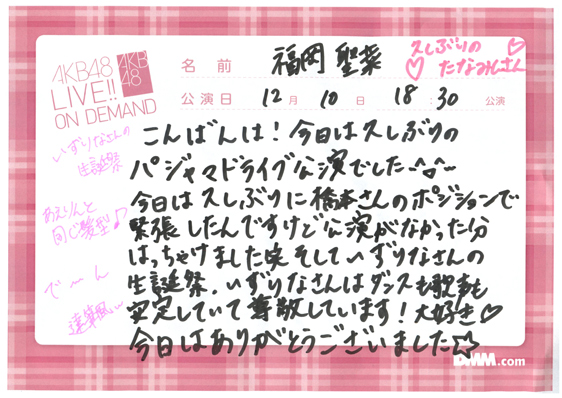 AKB48
LIVE!!
ON DEMAND
AKB
48
名前 福岡聖菜
久しぶりの♡
♡たなみんさん
公演日 12月10日 18:30公演
いずりなさんの
生誕祭
あえりんと
同じ髪型♪
で〜ん
達筆風...
こんばんは!今日は久しぶりの
パジャマドライブ公演でした^o^
今日は久しぶりに橋本さんのポジションで
緊張したんですけど公演がなかった分
はっちゃけました笑 そしていずりなさんの
生誕祭、いずりなさんはダンスも歌声も
安定していて尊敬しています!大好き♡
今日はありがとうございました☆
DMM.com